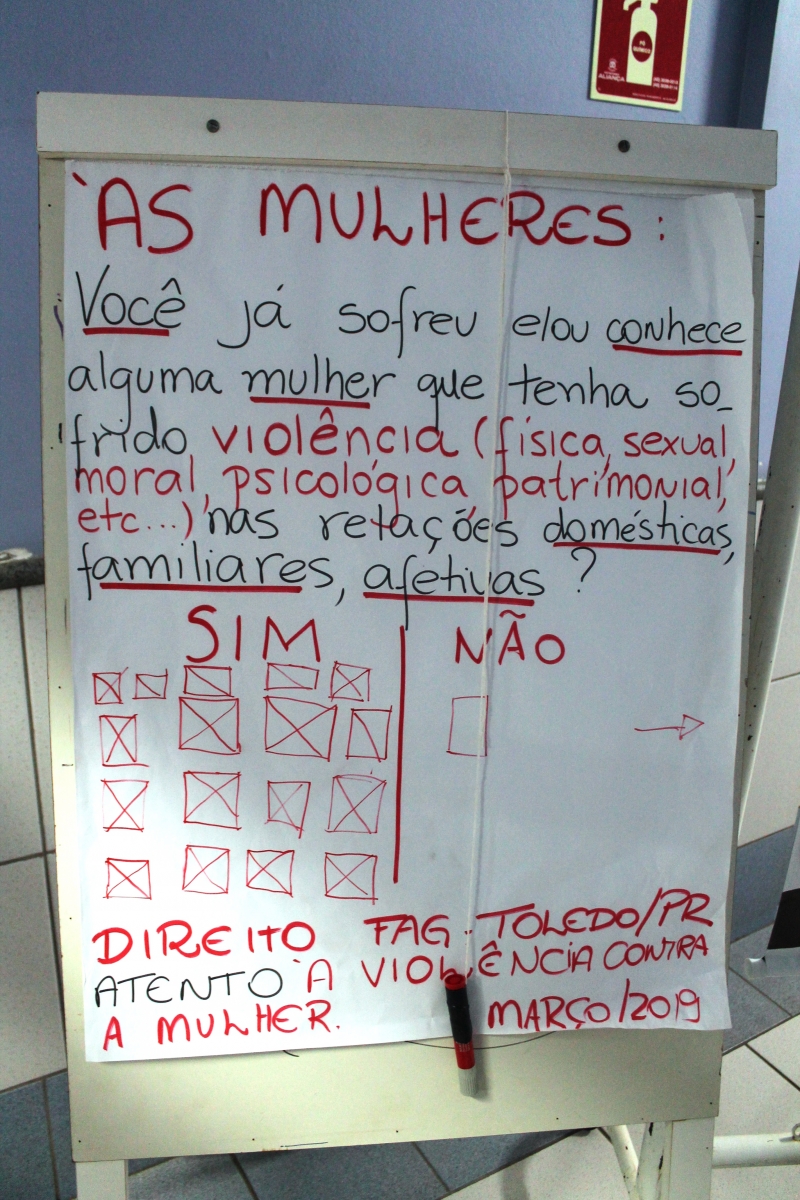 PÓ
QUÍMICO
ALIANÇA
`AS MULHERES:
Você já sofreu e/ou conhece
alguma mulher que tenha so_
frido violência (física, sexual,
moral, psicológica, patrimonial,
etc...) nas relações domésticas,
familiares, afetivas?
SIM NÃO
DIREITO FAG - TOLEDO/PR
ATENTO `A VIOLÊNCIA CONTRA
A MULHER. MARÇO/2019